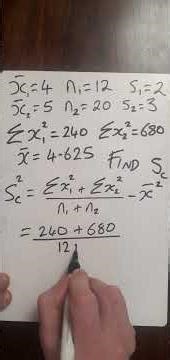 x̄₁=4 n₁=12 S₁=2
x̄₂=5 n₂=20 S₂=3
Σx₁²=240 Σx₂²=680
x̄=4.625 FIND Sc
Sc²=(Σx₁²+Σx₂²)/(n₁+n₂)-x̄²
=(240+680)/12